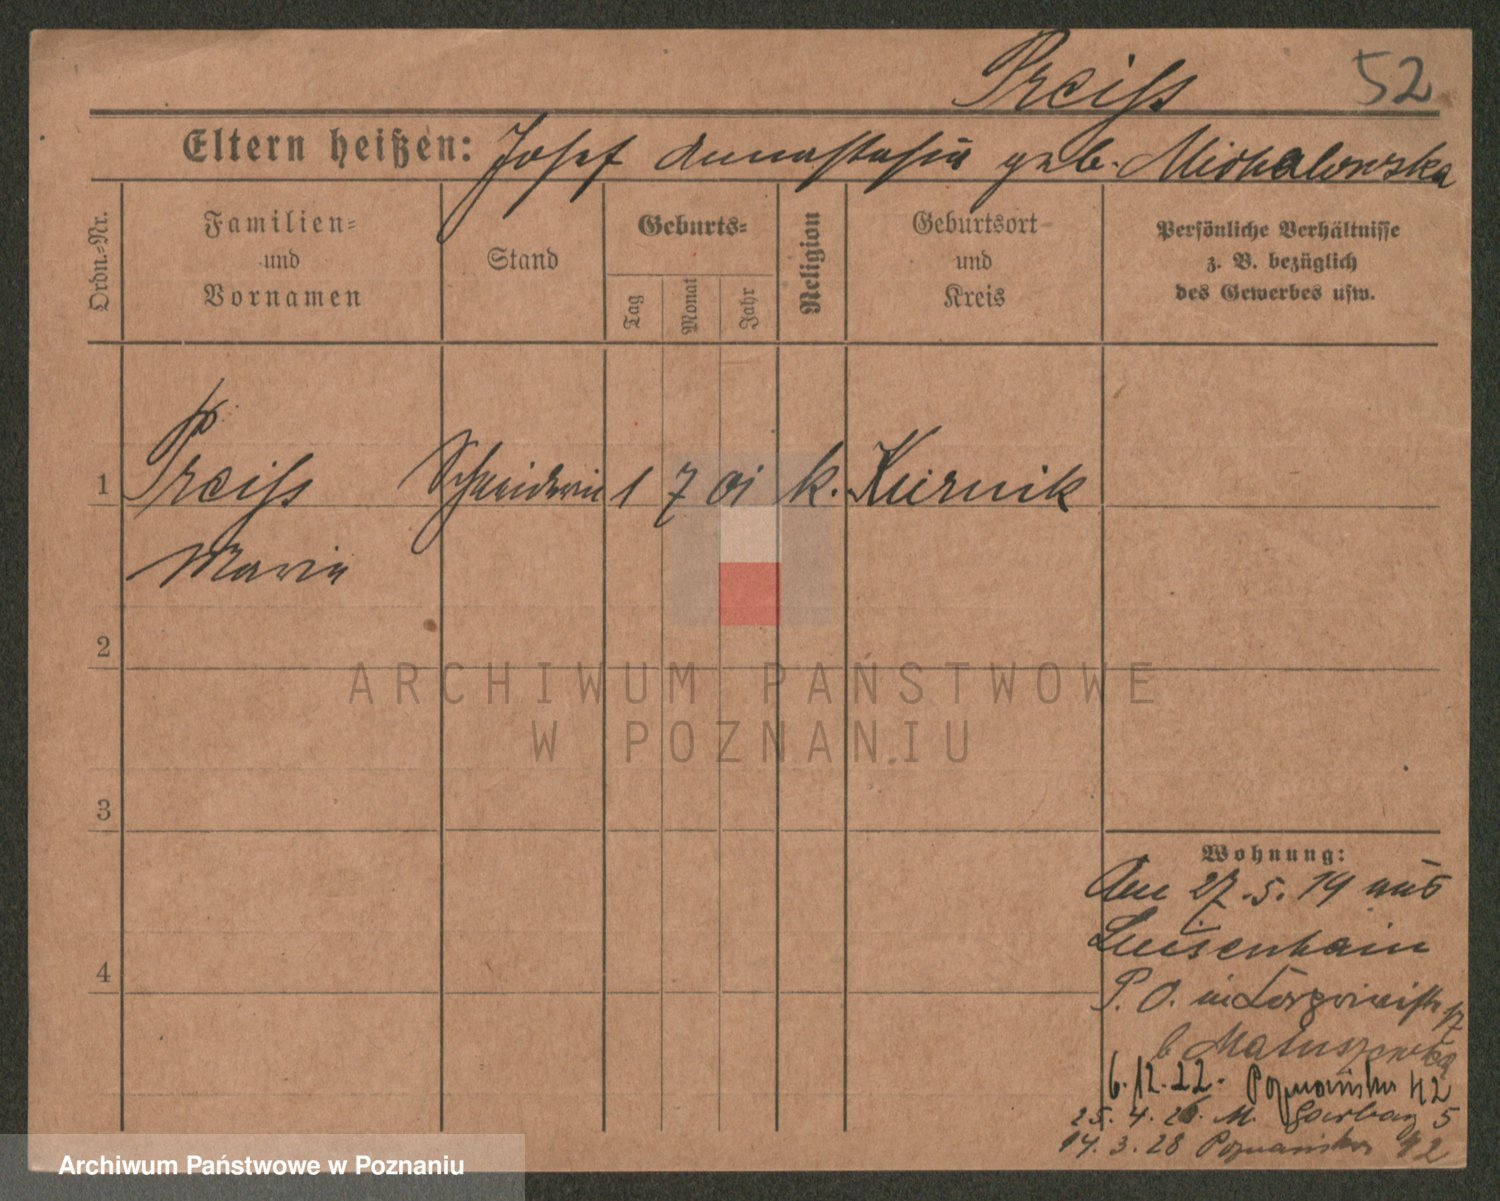 Preiss 52
Eltern heißen: Josef Annastasia geb. Michalowska
Ordn.-Nr.
Familien- und Vornamen
Stand
Geburts-
Tag
Monat
Jahr
Religion
Geburtsort und Kreis
Persönliche Verhältnisse z. B. bezüglich des Gewerbes usw.
1 Preiss Schneiderin 1 7 01 k. Kurnik
Maria
2
ARCHIWUM PAŃSTWOWE
W POZNANIU
3
4
Wohnung:
Am 27.5.19 aus
Luisenhain
P. O. in
b Matuszewska
6.12.22. Poznańska 42
25.4.26. M. Garbary 5
14.3.28 Poznańska 42
Archiwum Państwowe w Poznaniu